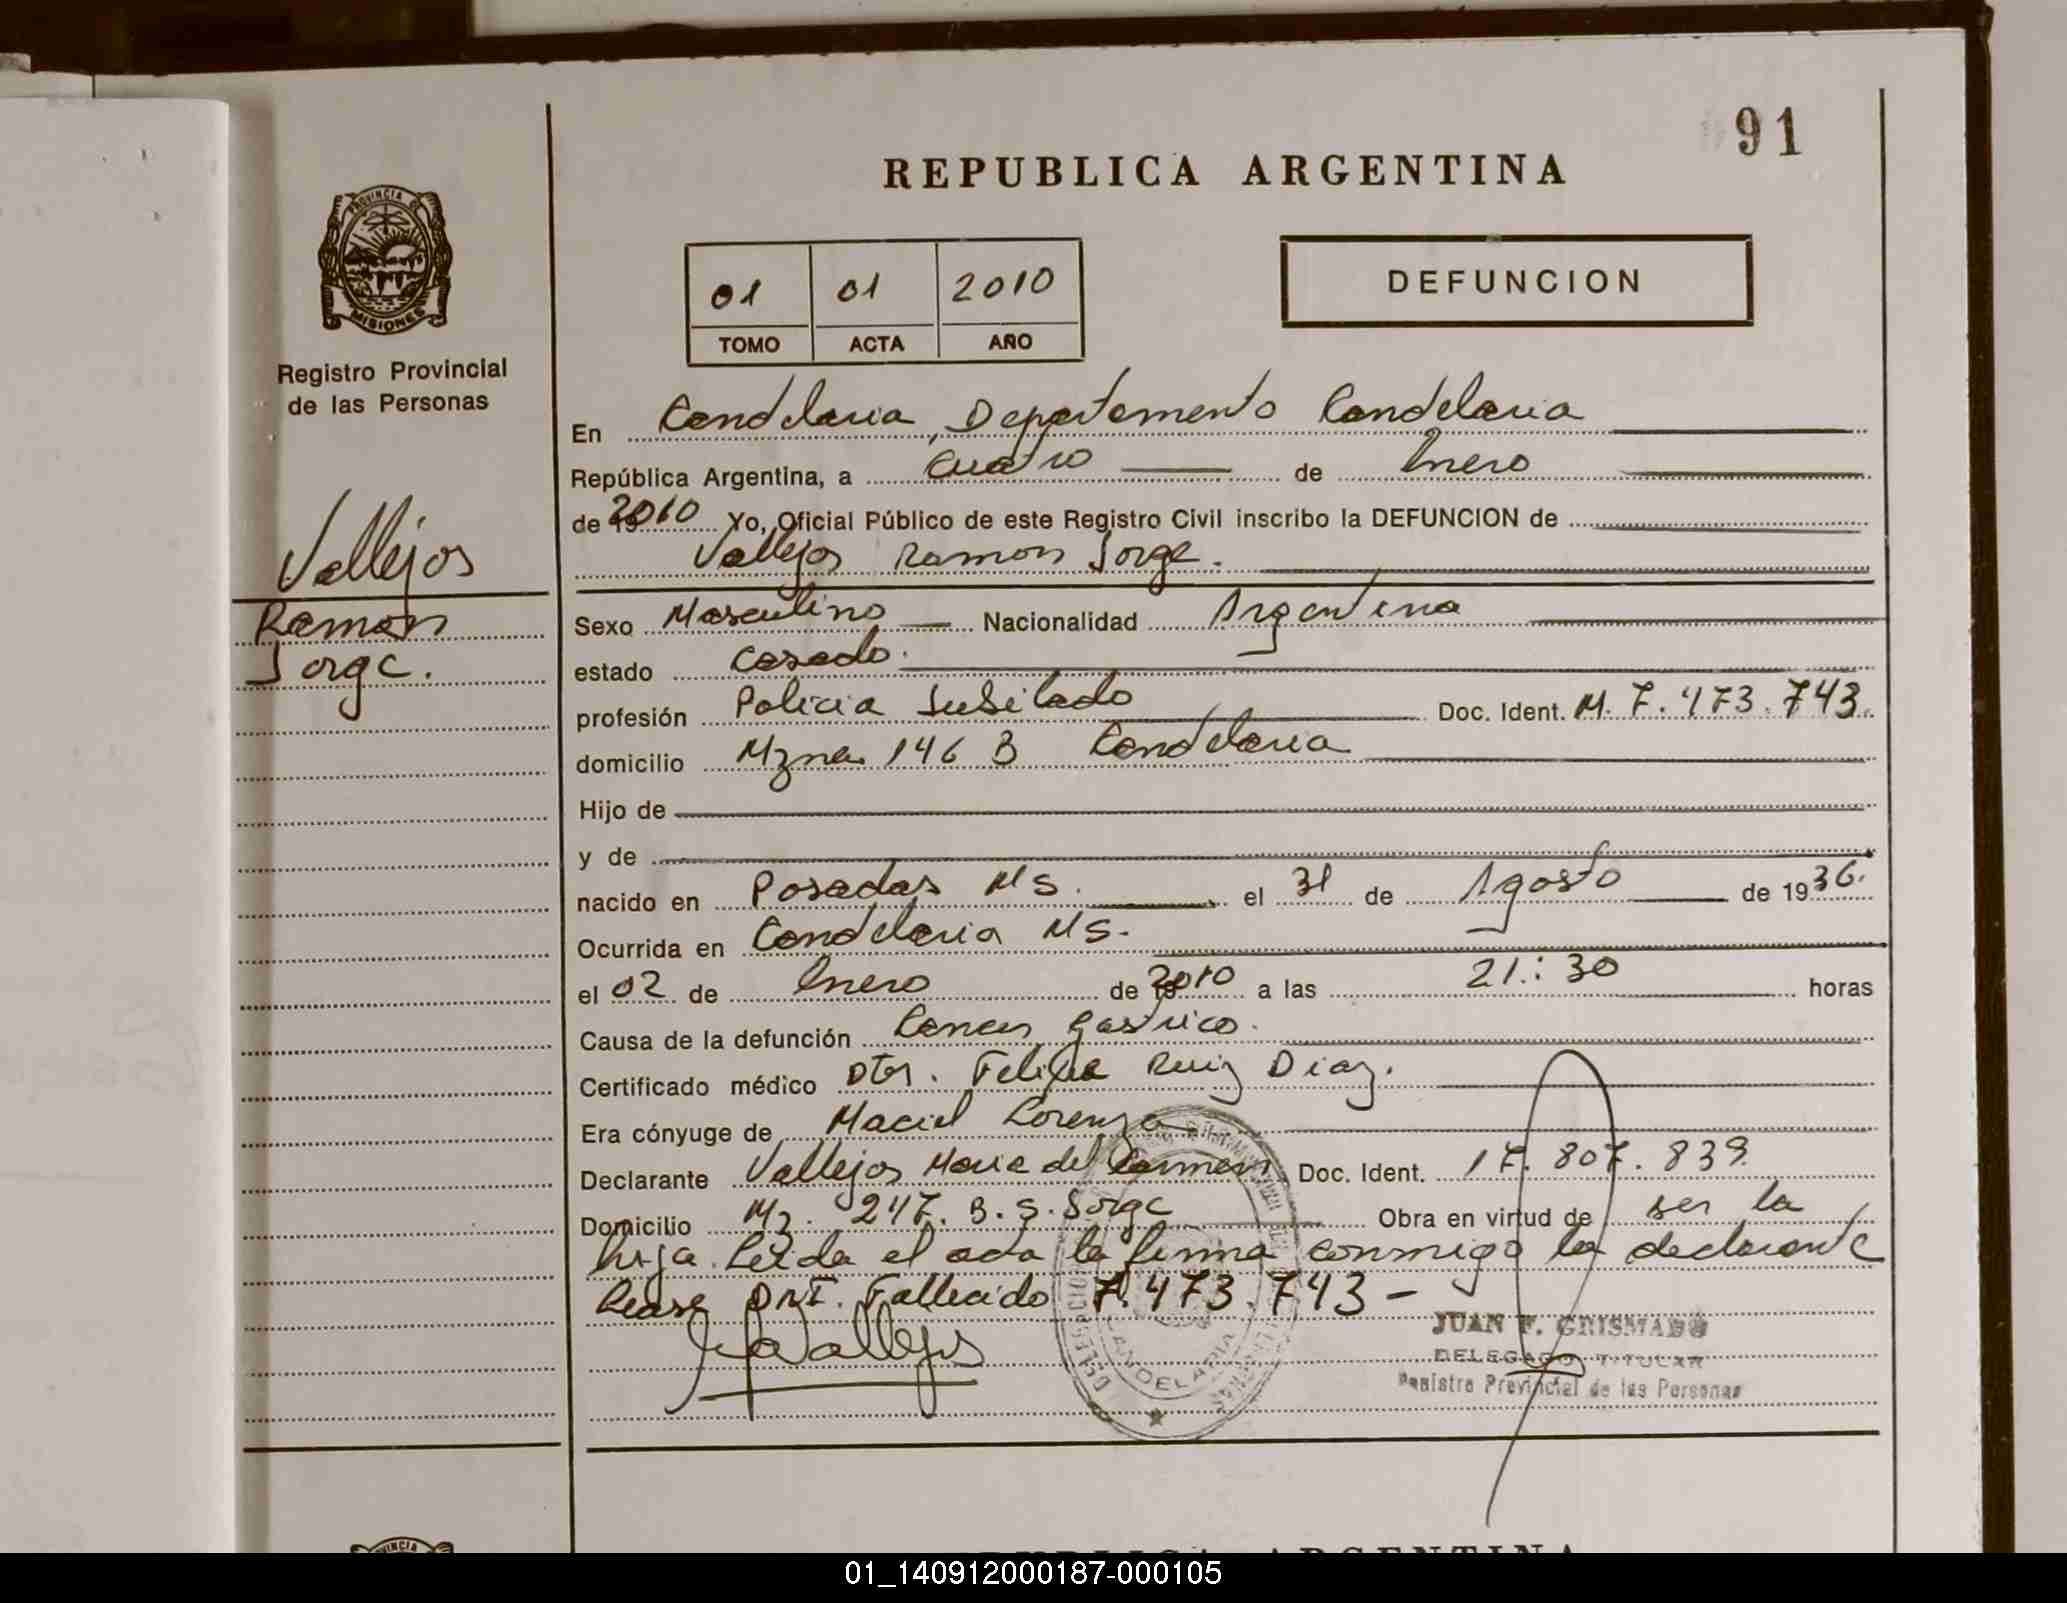 91
REPUBLICA ARGENTINA
PROVINCIA DE
MISIONES
Registro Provincial
de las Personas
01 01 2010
TOMO ACTA AÑO
DEFUNCION
En Candelaria, Departamento Candelaria
República Argentina, a cuatro de Enero
de 2010 Yo, Oficial Público de este Registro Civil inscribo la DEFUNCION de
Vallejos Ramon Jorge.
Vallejos
Ramon
Jorge.
Sexo Masculino Nacionalidad Argentina
estado casado.
profesión Policia Jubilado Doc. Ident. M. 7.473.743.
domicilio Mzna 146 B Candelaria
Hijo de
y de
nacido en Posadas Ms. el 31 de Agosto de 1936.
Ocurrida en Candelaria Ms.
el 02 de Enero de 2010 a las 21:30 horas
Causa de la defunción Cancer gastrico.
Certificado médico Dtor. Felipe Ruiz Diaz.
Era cónyuge de Maciel Lorenza
Declarante Vallejos Maria del Carmen Doc. Ident. 17.807.839
Domicilio Mz. 247. B. S. Jorge Obra en virtud de ser la
hija. Leida el acta la firma conmigo la declarante
Lease DNI. Fallecido 7.473.743 -
Vallejos
CANDELARIA
JUAN F. GRISMADO
DELEGADO TITULAR
Registro Provincial de las Personas
REPUBLICA ARGENTINA
01_140912000187-000105